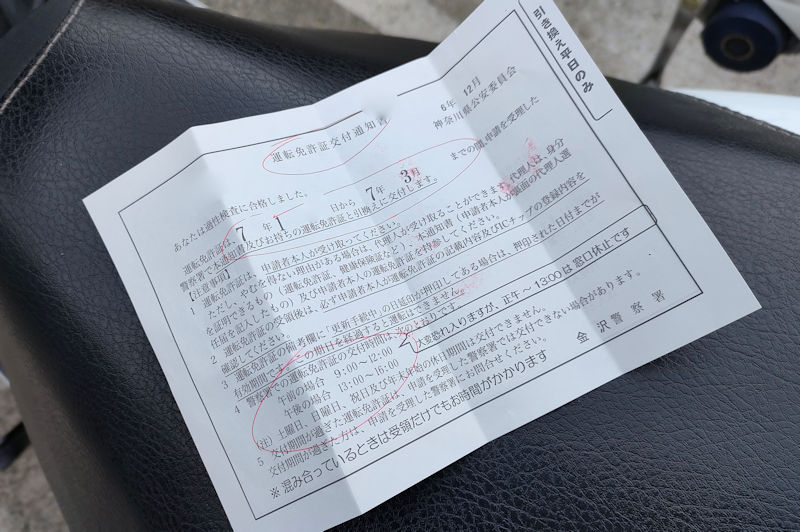 引き換え平日のみ
6年 12月
神奈川県公安委員会
運転免許証交付通知書
あなたは適性検査に合格しました。
運転免許証は、7年1 日から 7年 3月 までの間、申請を受理した
警察署で本通知書及びお持ちの運転免許証と引換えに交付します。
【注意事項】
1 運転免許証は、申請者本人が受け取ってください。
ただし、やむを得ない理由がある場合は、代理人が受け取ることができます。代理人は、身分
を証明できるもの(運転免許証、健康保険証など)、本通知書(申請者本人が裏面の代理人選
任届を記入したもの)及び申請者本人の運転免許証を持参してください。
2 運転免許証の受領後は、必ず申請者本人が運転免許証の記載内容及びICチップの登録内容を
確認してください。
3 運転免許証の備考欄に「更新手続中」の日延印が押印してある場合は、押印された日付までが
有効期間です。この期日を経過すると運転はできません。
4 警察署での運転免許証の交付時間は次のとおりです。
午前の場合 9:00〜12:00
午後の場合 13:00〜16:00
大変恐れ入りますが、正午〜13:00は窓口休止です
(注) 土曜日、日曜日、祝日及び年末年始の休日期間は交付できません。
5 交付期間が過ぎた運転免許証は、申請を受理した警察署では交付できない場合があります。
交付期間が過ぎた方は、申請を受理した警察署にお問合せください。
金沢警察署
※混み合っているときは受領だけでもお時間がかかります